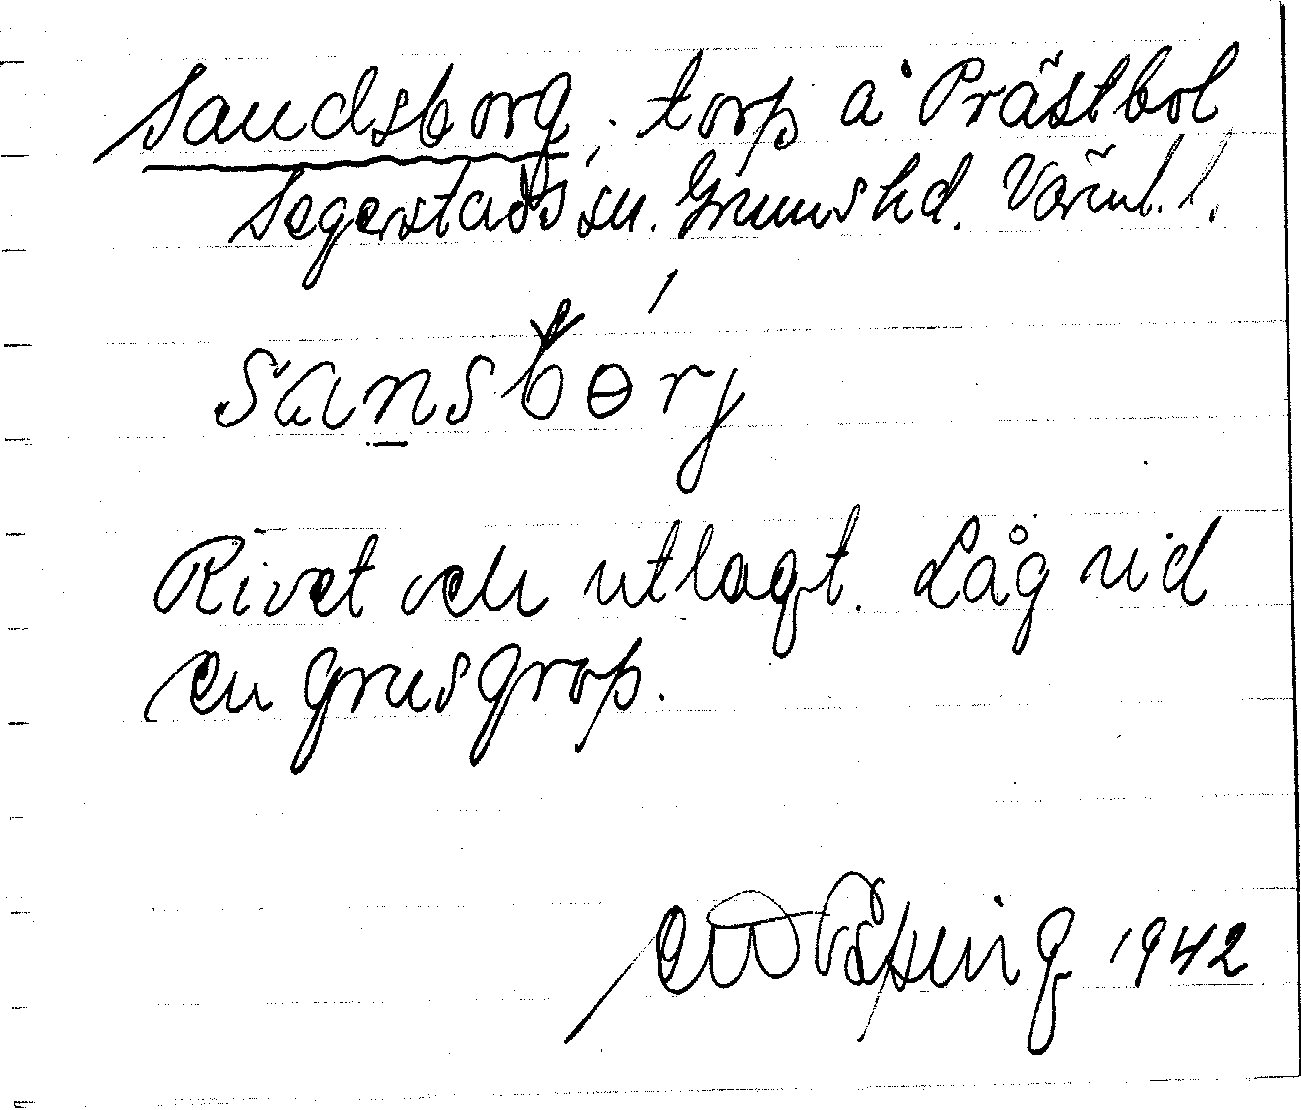 Sandsborg, torp å Prästbol
Segerstads sn. Grums hd. Värml. l.
sansbɵrj
Rivet och utlagt. Låg vid
en grusgrop.
1942